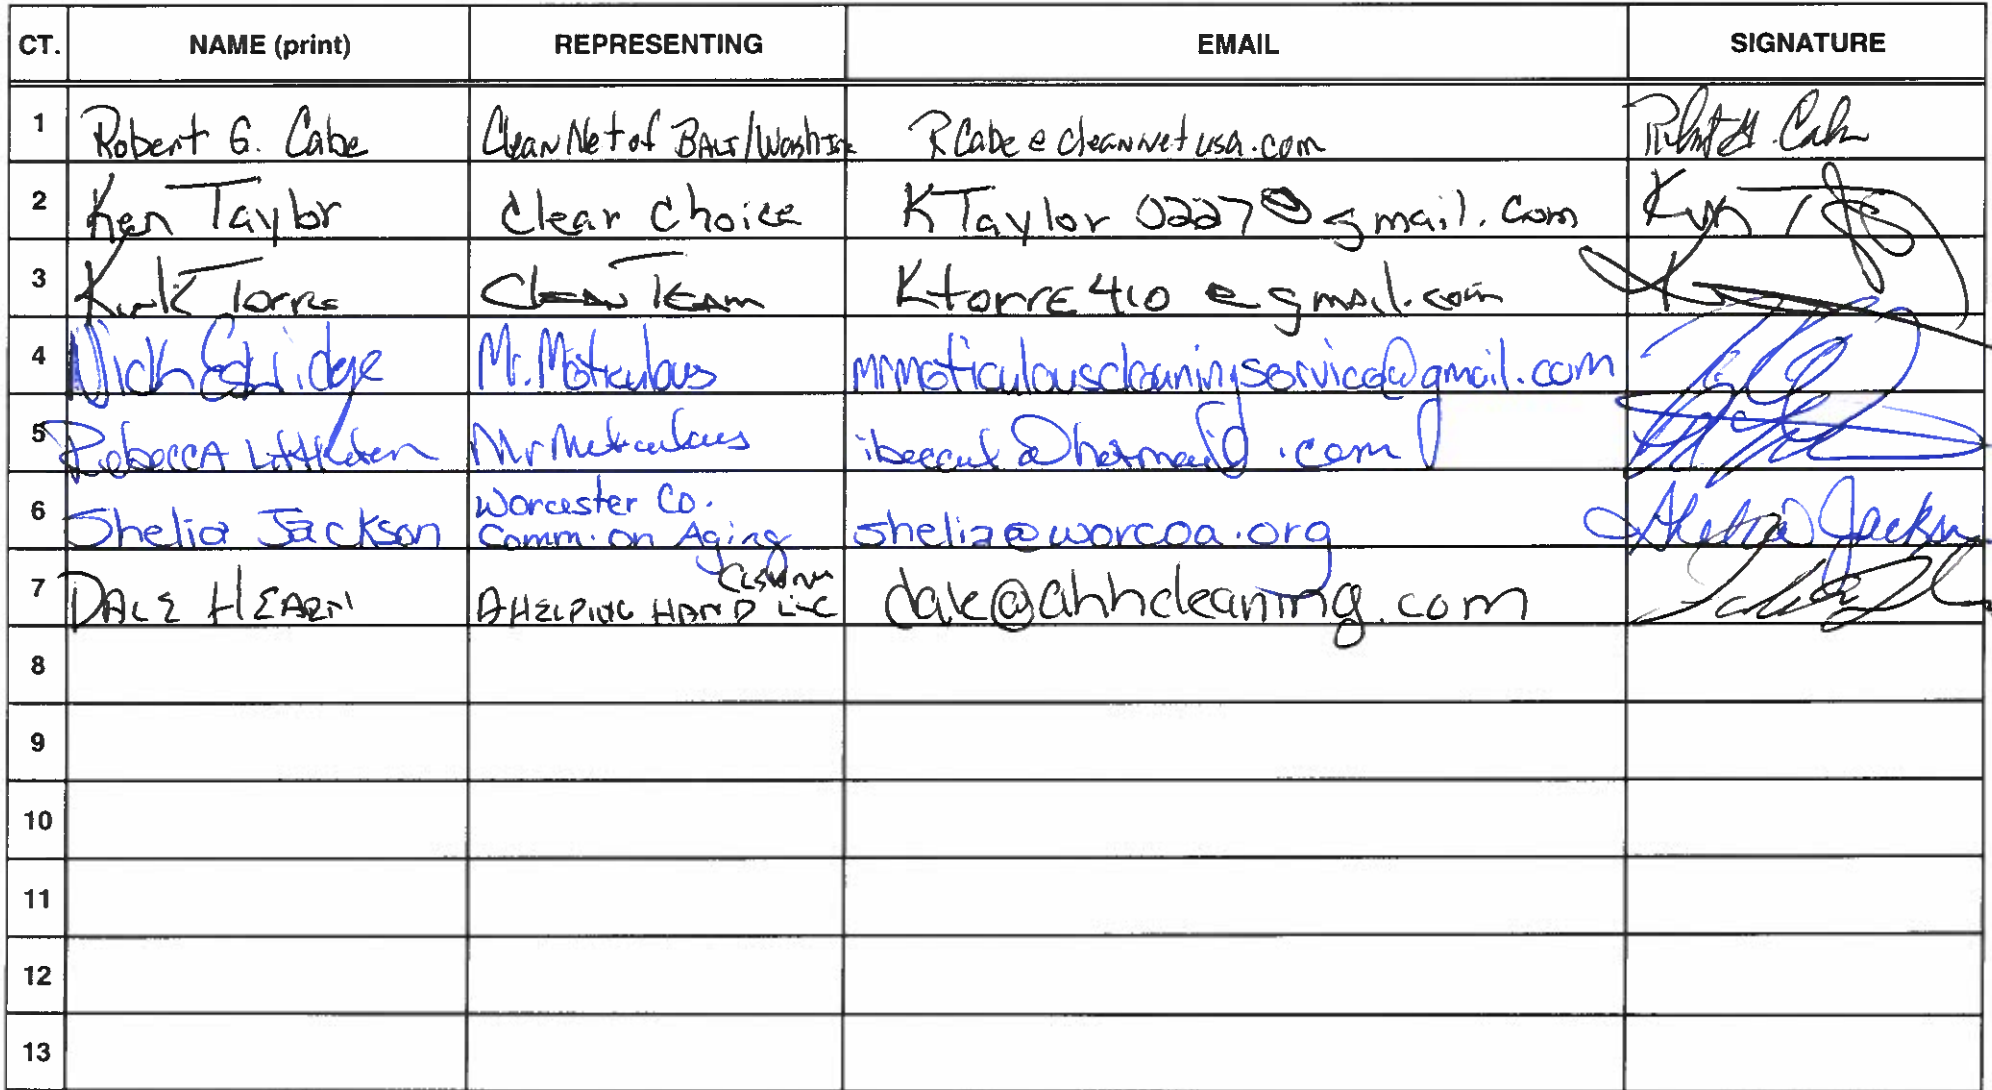 CT. NAME (print) REPRESENTING EMAIL SIGNATURE
1 Robert G. Cabe CleanNet of BALT/Washin RCabe@cleannetusa.com Robert G. Cabe
2 Ken Taylor Clear Choice KTaylor0227@gmail.com Ken
3 Kirk Torre Clean Team Ktorre410@gmail.com
4 Nick Eskridge Mr. Moticulous mrmoticulouscleaningservice@gmail.com
5 Rebecca Mr Meticulous @hotmail.com
6 Shelia Jackson Worcester Co.
Comm. on Aging shelia@worcoa.org Shelia Jackson
7 DALE HEARN A HELPING HAND Cleaning LLC dale@ahhcleaning.com
8
9
10
11
12
13